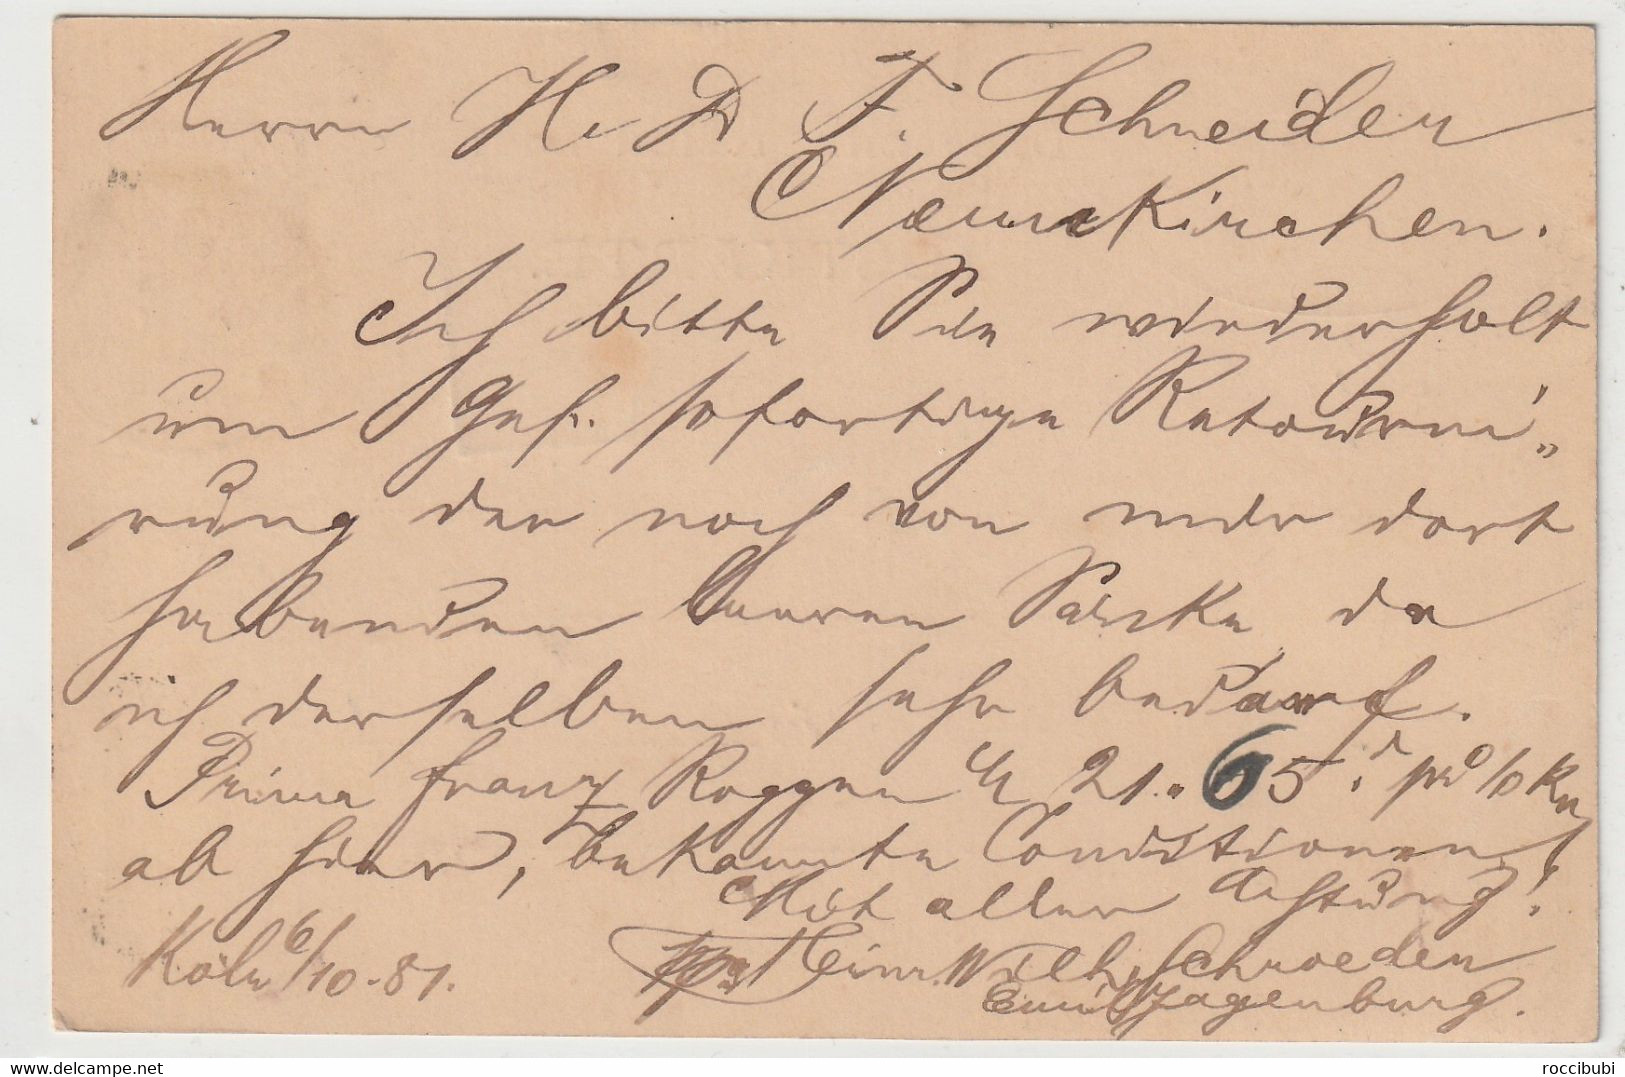 Herrn H. D F. Schneider
Neunkirchen.
Ich bitte Sie wiederholt
um gef. sofortige Retourni„
rung der noch von mir dort
habenden leeren Säcke, da
ich derselben sehr bedarf.
Prima franz Roggen 21.65
ab hier, bekannte Conditionen!
Mit aller Achtung!
Köln 6/10-81.
ppa Heinr. Wilh. Schroeder
Emil Jagenburg.
delcampe.net
roccibubi